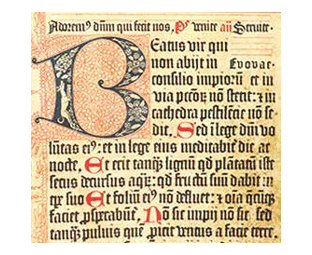 Adorem⁹ dnm qui fecit nos, Ps venite añ Servite.
Beatus vir qui
non abijt in Evovae
consilio impiorū et in
via pcōꝝ nō stetit: ⁊ in
cathedra pestilēcie nō se-
dit. Sed ī lege dnī vo
lūtas ei⁹: et in lege eius meditabit̄ die ac
nocte. Et erit tanqȝ lignū qd plātatū iste
secus decursus aqꝝ: qd fructū suū dabit in
tpr suo Et foliū ei⁹ nō defluet: ⁊ oīa qcūqȝ
faciet prosperabūt. Nō sic impij nō sic sed
tanqȝ puluis quē proicit ventus a facie terre.